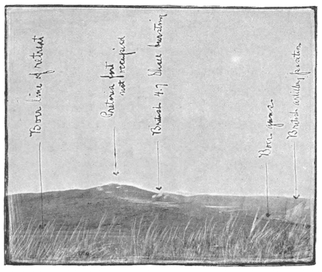 Boer line of retreat
Pretoria fort
not occupied
British 4.7 Shell bursting
Boer guns
British artillery position